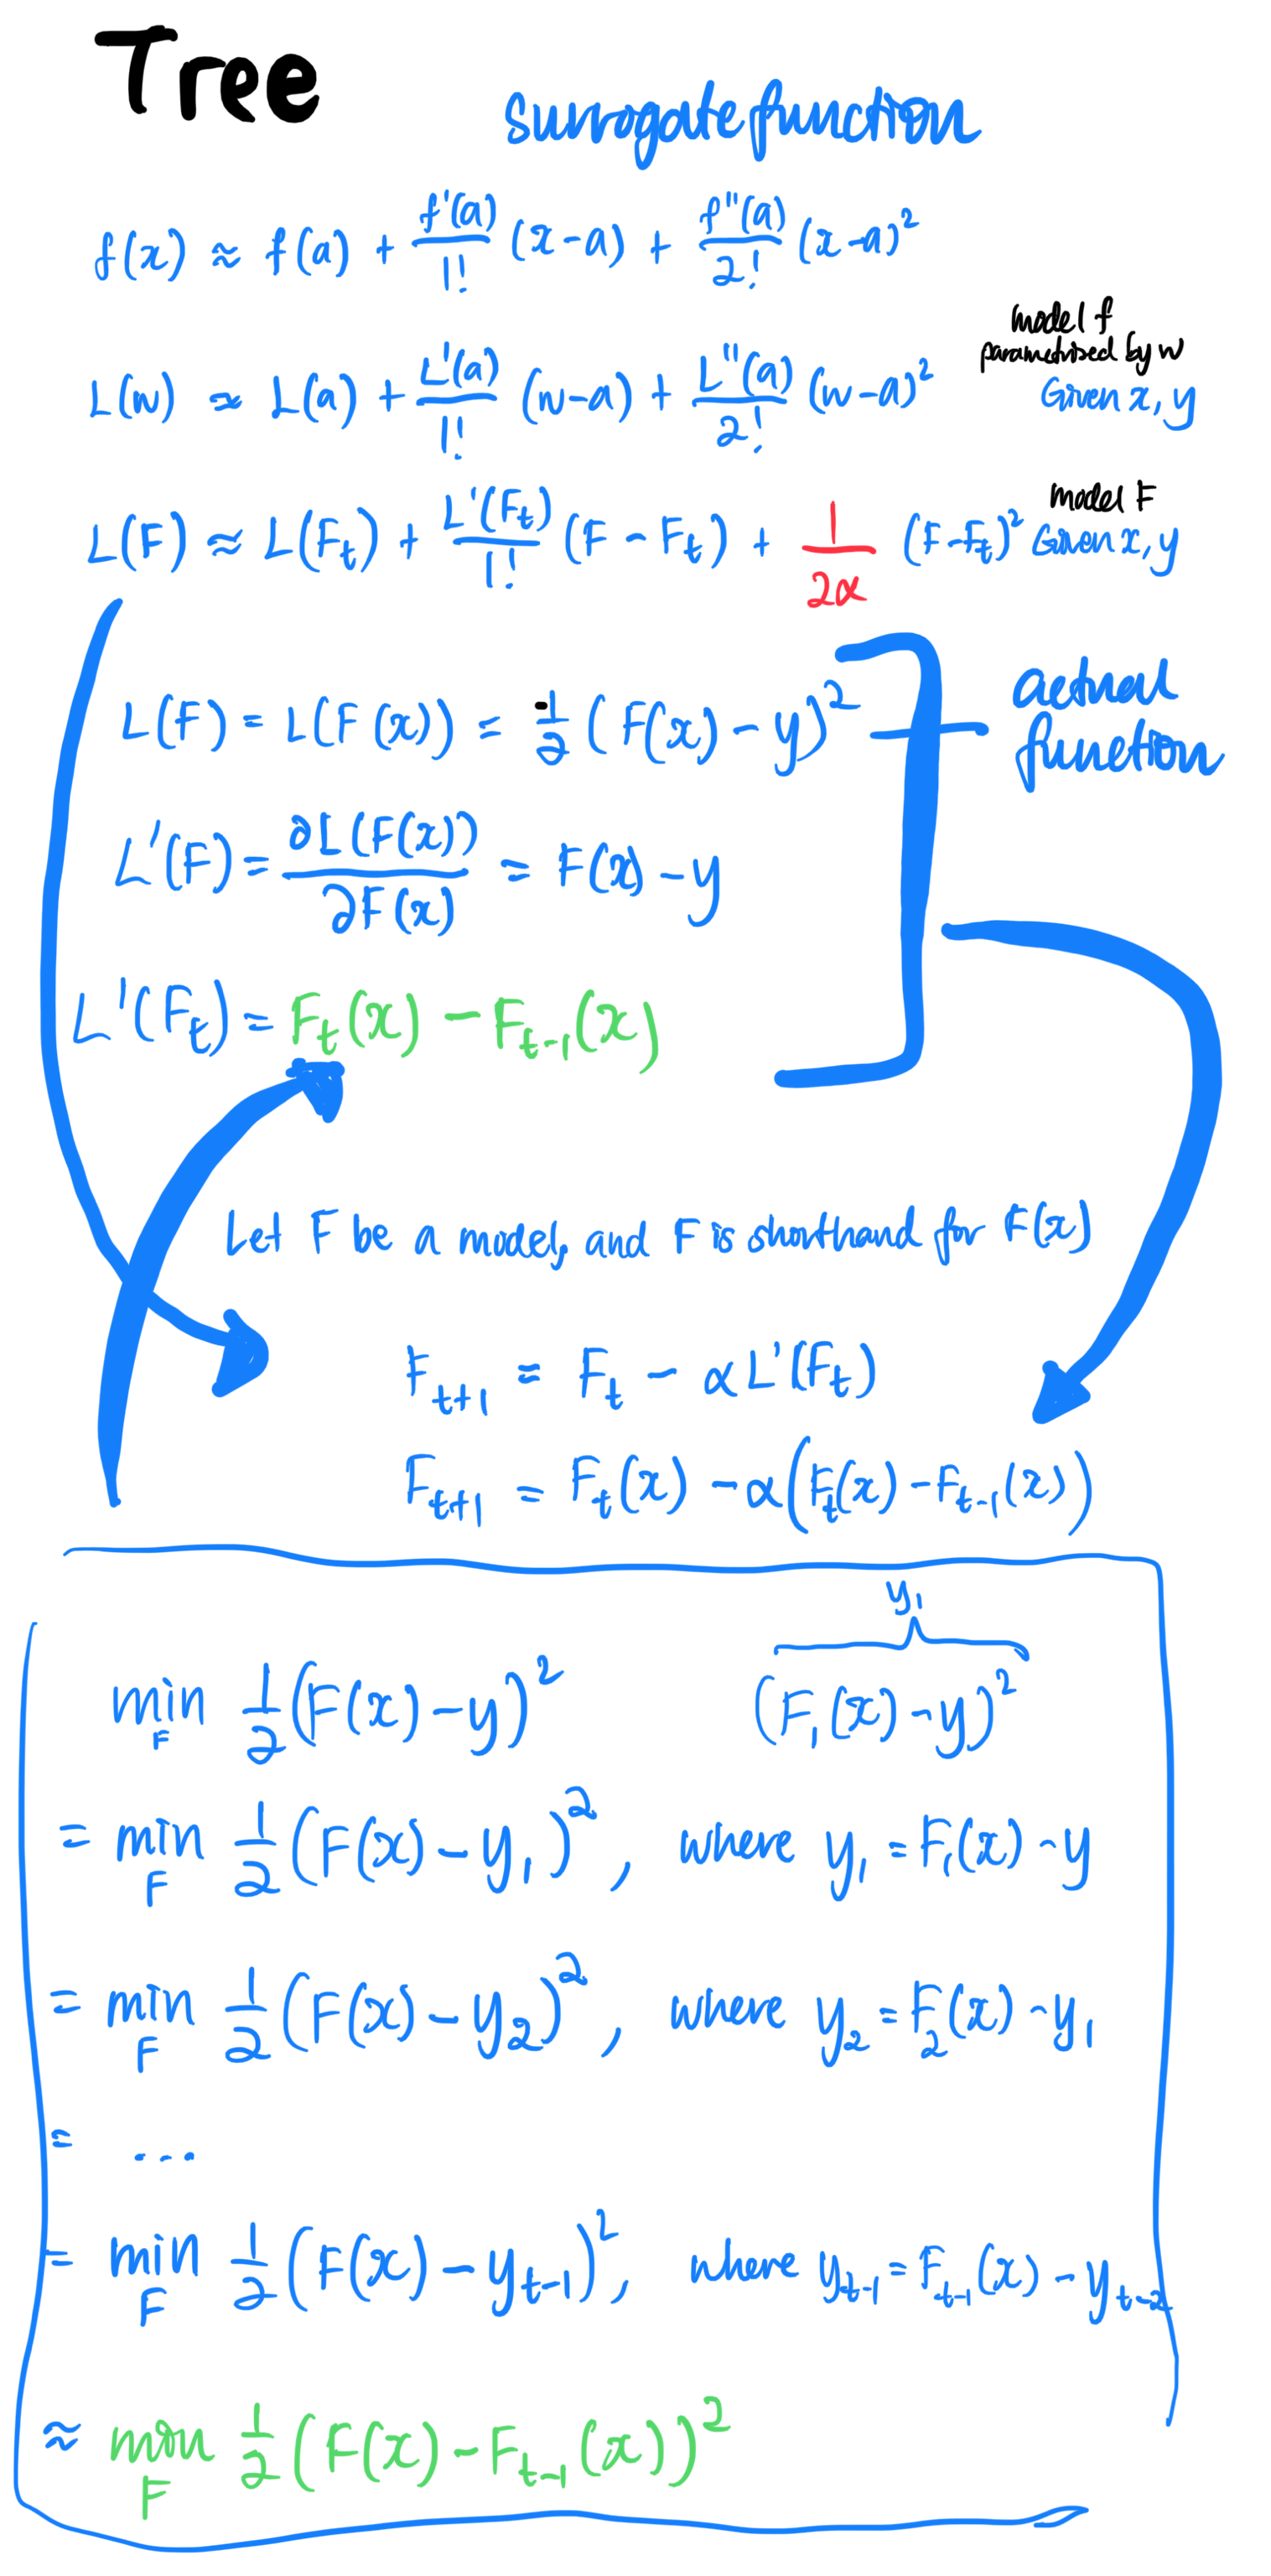 Tree
surrogate function
f(x) ≈ f(a) + f'(a)/1! (x-a) + f''(a)/2! (x-a)²
model f
parametrised by w
L(w) ≈ L(a) + L'(a)/1! (w-a) + L''(a)/2! (w-a)²
Given x, y
model F
L(F) ≈ L(F_t) + L'(F_t)/1! (F - F_t) + 1/2α (F-F_t)² Given x, y
L(F) = L(F(x)) = 1/2 (F(x) - y)²
actual
function
L'(F) = ∂L(F(x))/∂F(x) = F(x) - y
L'(F_t) = F_t(x) - F_{t-1}(x)
Let F be a model, and F is shorthand for F(x)
F_{t+1} = F_t - αL'(F_t)
F_{t+1} = F_t(x) - α(F_t(x) - F_{t-1}(x))
y₁
min_F 1/2 (F(x) - y)² (F₁(x) - y)²
= min_F 1/2 (F(x) - y₁)², where y₁ = F₁(x) - y
= min_F 1/2 (F(x) - y₂)², where y₂ = F₂(x) - y₁
= ...
= min_F 1/2 (F(x) - y_{t-1})², where y_{t-1} = F_{t-1}(x) - y_{t-2}
≈ min_F 1/2 (F(x) - F_{t-1}(x))²